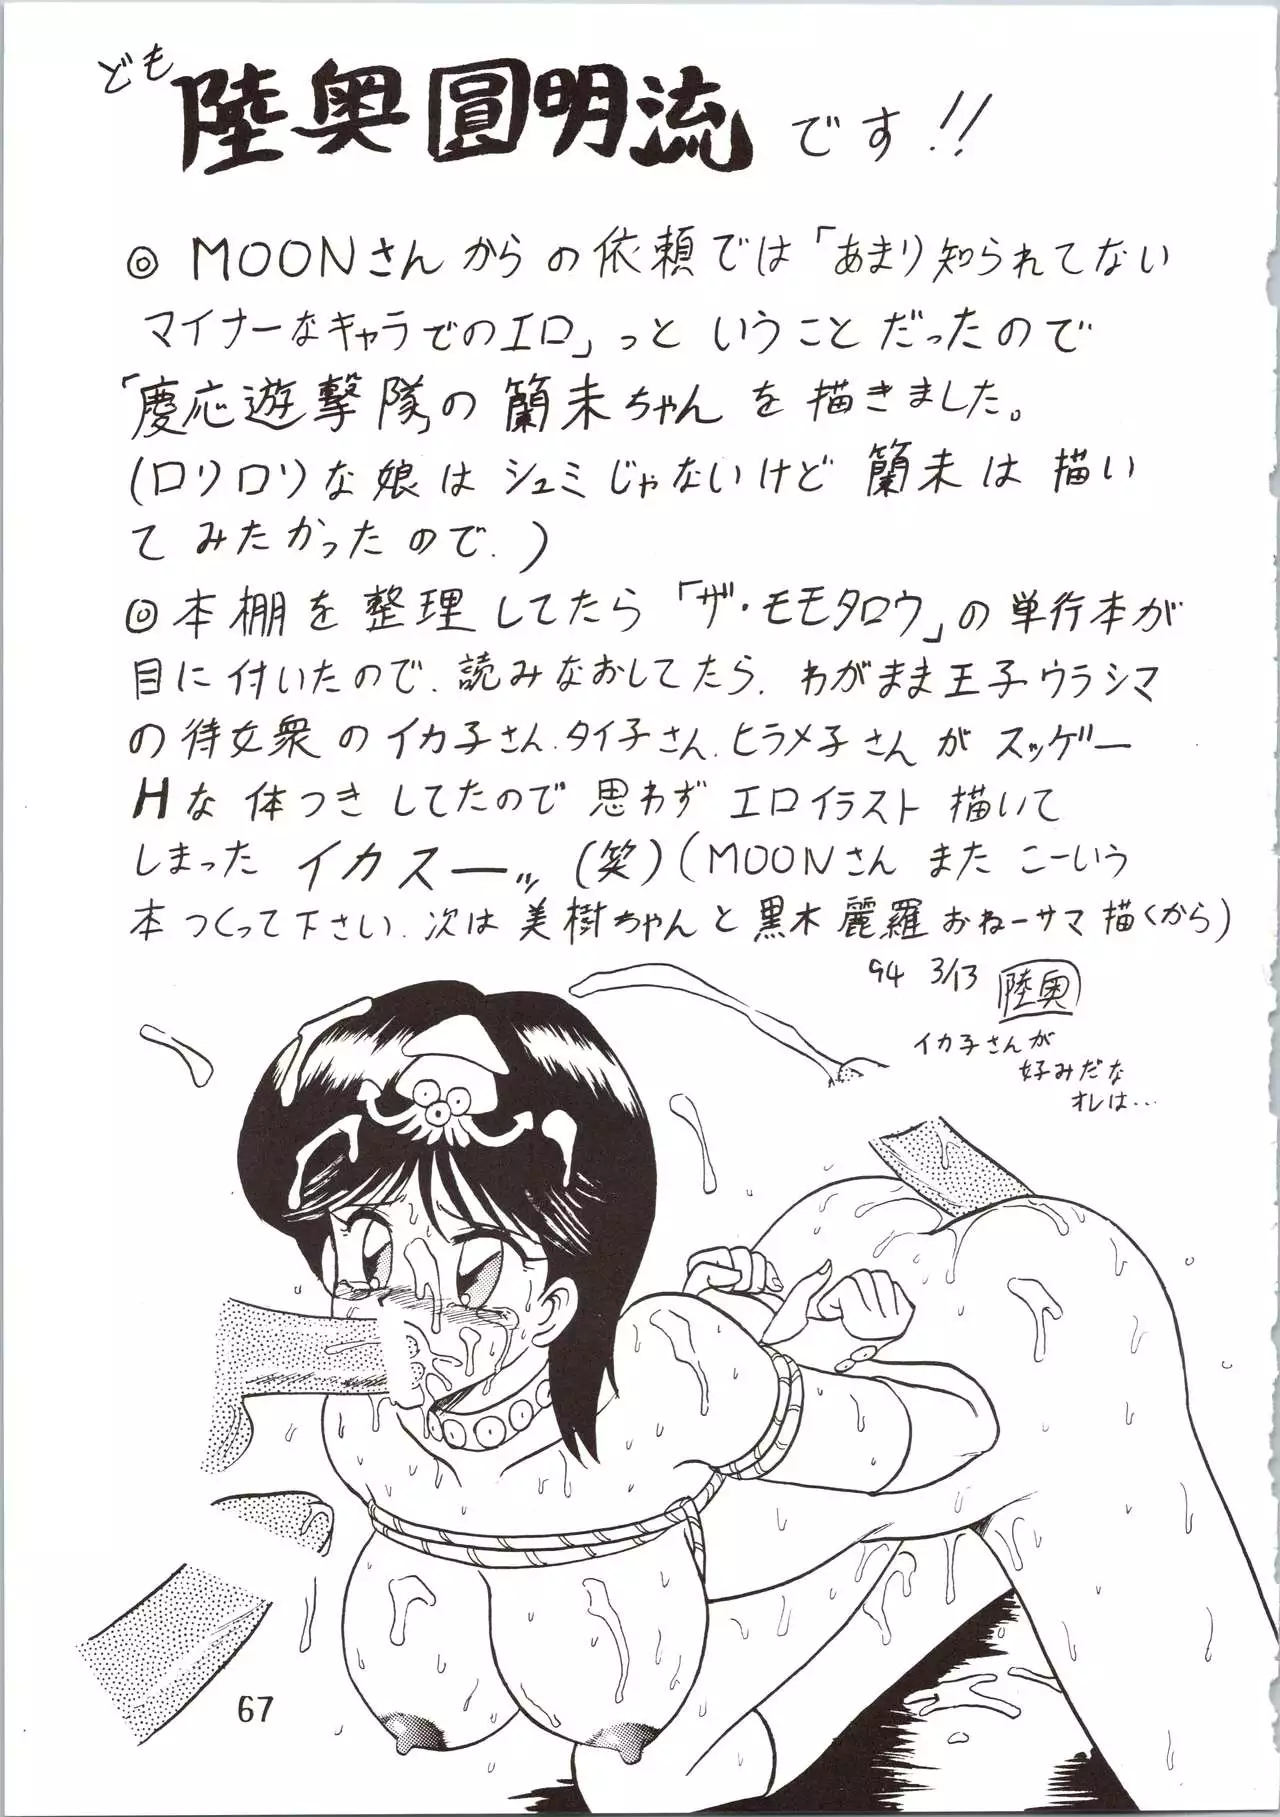 ども 陸奥圓明流 です!!
◎ MOONさんからの依頼では「あまり知られてない
マイナーなキャラでのエロ」っと いうことだったので
「慶応遊撃隊」の蘭未ちゃんを描きました。
(ロリロリな娘はシュミじゃないけど 蘭未は描い
てみたかったので.)
◎本棚を整理してたら「ザ・モモタロウ」の単行本が
目に付いたので.読みなおしてたら.わがまま王子ウラシマ
の待女衆のイカ子さん.タイ子さん.ヒラメ子さんがスッゲー
Hな体つきしてたので思わずエロイラスト描いて
しまった イカスーーッ(笑)(MOONさん また こーいう
本つくって下さい.次は美樹ちゃんと黒木麗羅おねーサマ描くから)
94 3/13 陸奥
イカ子さんが
好みだな
オレは...
67